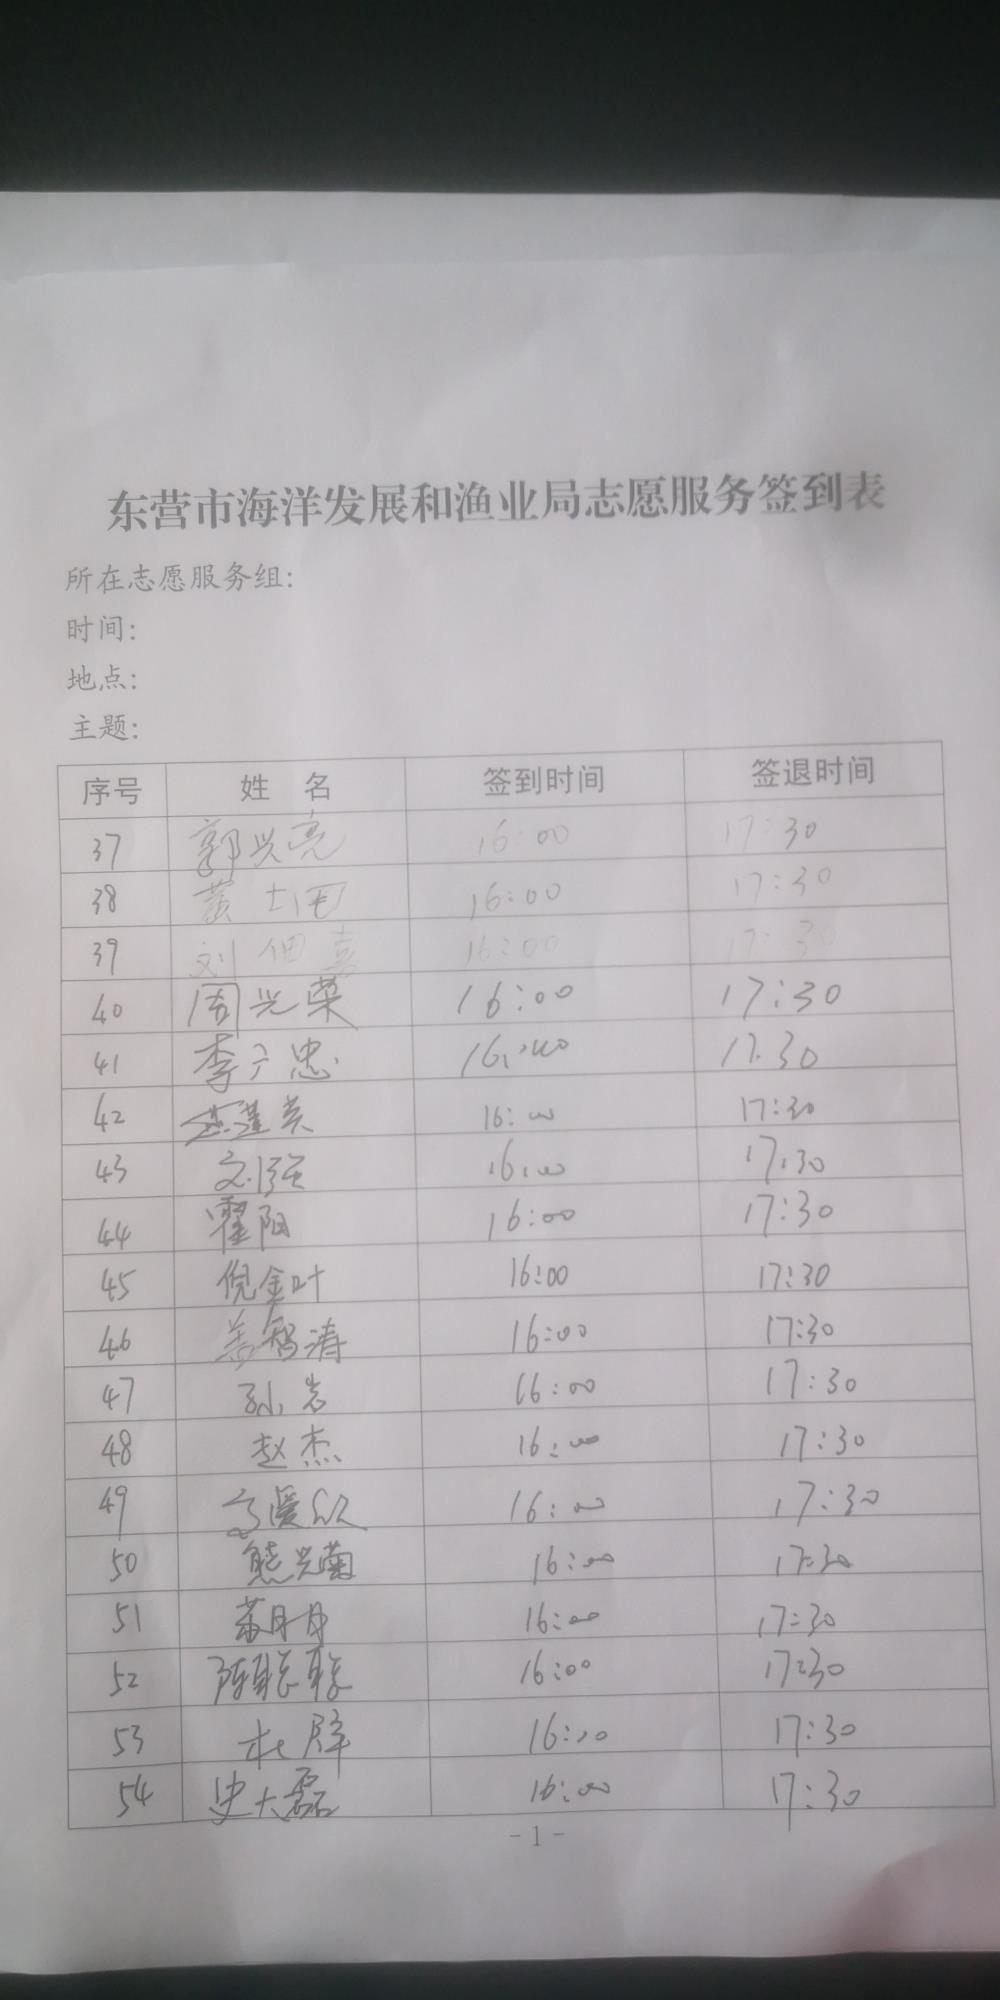 东营市海洋发展和渔业局志愿服务签到表
所在志愿服务组:
时间:
地点:
主题:
序号 姓 名 签到时间 签退时间
37 郭兴亮 16:00 17:30
38 黄 16:00 17:30
39 刘佃 16:00 17:30
40 周兴荣 16:00 17:30
41 李广忠 16:00 17.30
42 16:00 17:30
43 16:00 17:30
44 霍阳 16:00 17:30
45 倪金叶 16:00 17:30
46 智涛 16:00 17:30
47 孙岩 16:00 17:30
48 赵杰 16:00 17:30
49 16:00 17:30
50 熊兴菊 16:00 17:30
51 苏丹丹 16:00 17:30
52 陈联联 16:00 17:30
53 杜辉 16:00 17:30
54 史大磊 16:00 17:30
- 1 -